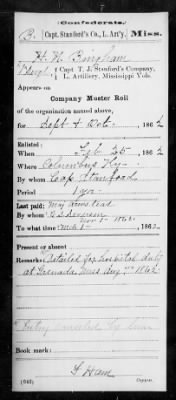 Confederate.
B. Capt. Stanford's Co., L. Art'y. Miss.
H. W. Bingham
Capt. T. J. Stanford's Company,
L. Artillery, Mississippi Vols.
Appears on
Company Muster Roll
of the organization named above,
for Sept & Oct. 1862
Enlisted:
When Feb 25 1862
Where Columbus Ky
By whom Cap Stanford
Period 1 yr
Last paid:
By whom
To what time 1862
Present or absent
Remarks: Detailed for hospital duty
at Grenada Miss Aug 1862
Book mark:
Ham
(642) Copyist.